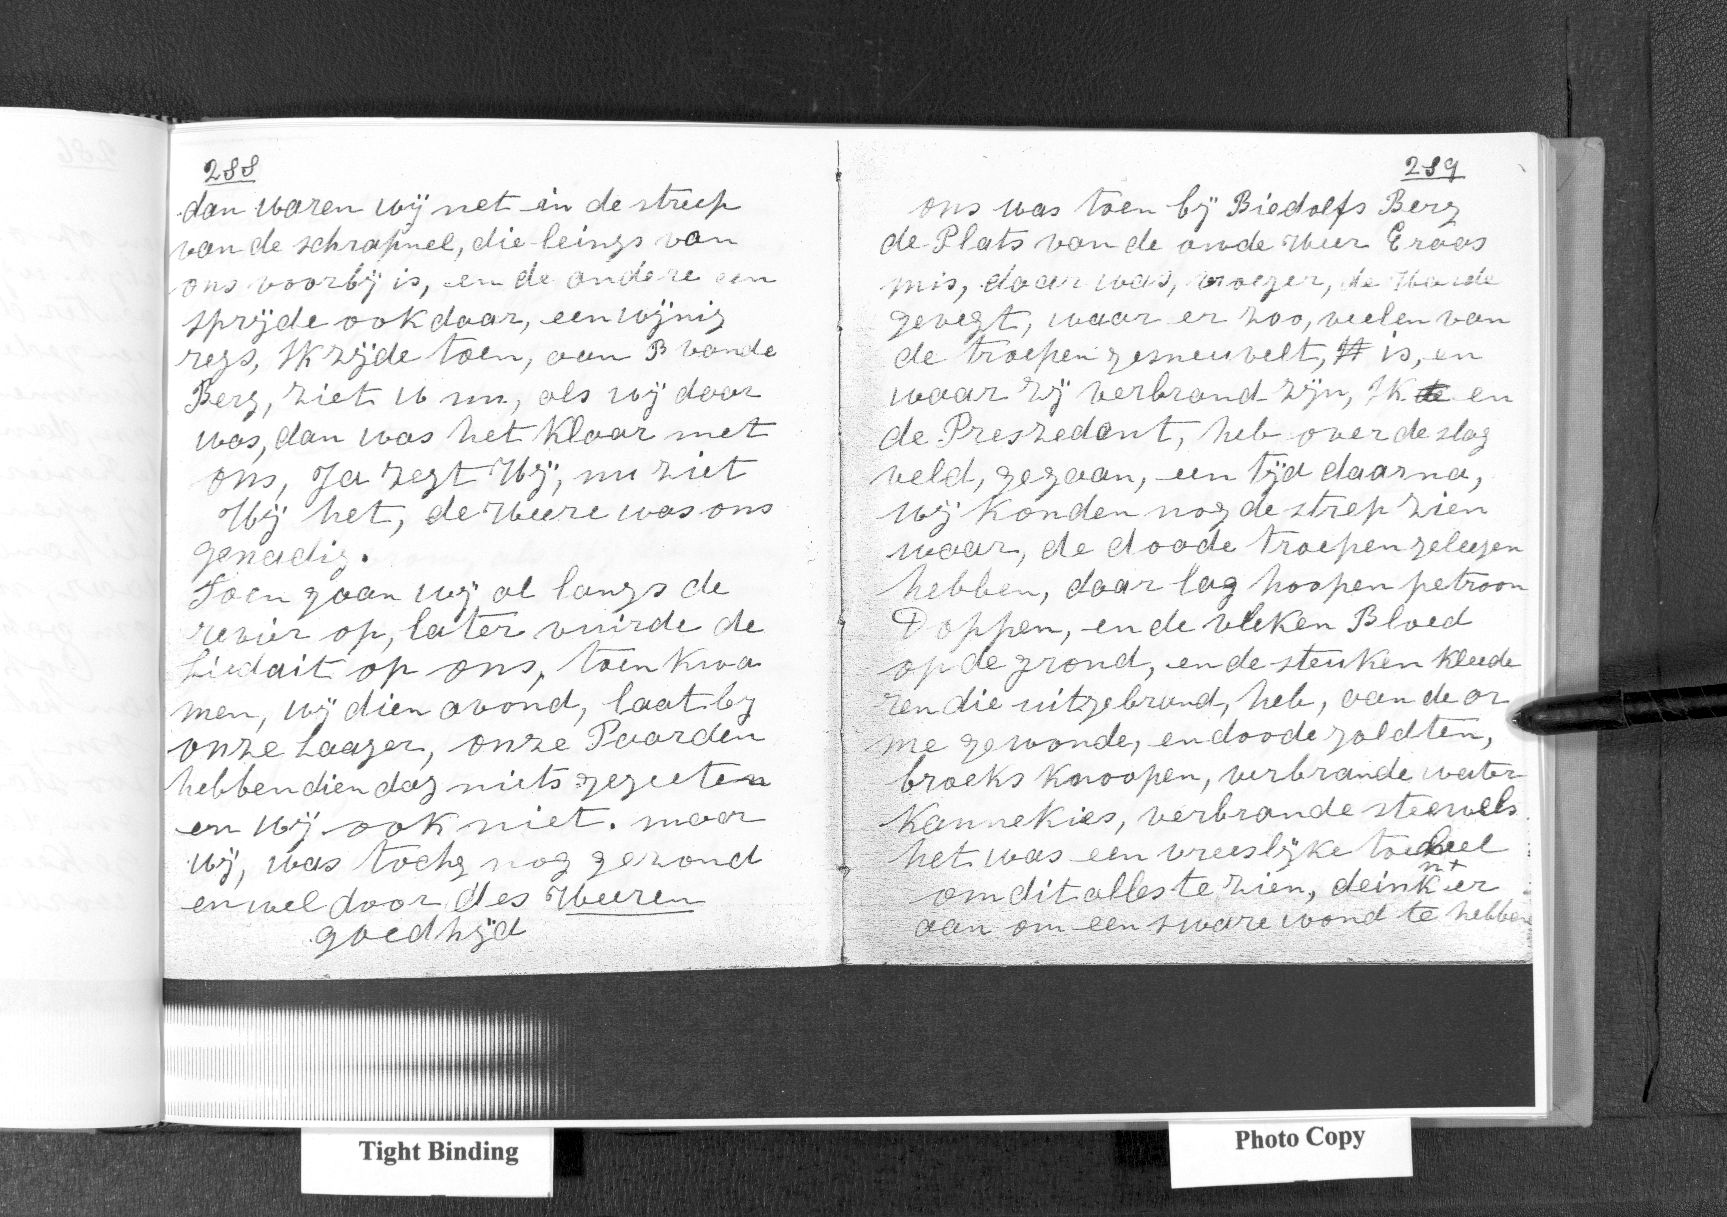 288
dan waren wij net in de streep
van de schrapnel, die leings van
ons voorbij is, en de andere een
sprijde ook daar, een wijnig
regs, Ik zijde toen, aan B vande
Berg, ziet u nu, als wij daar
was, dan was het klaar met
ons, Ja zegt Wij, nu ziet
Wij het, de Heere was ons
genadig.
Toen gaan wij al langs de
revier op, later vuirde de
Liedait op ons, toen kwa
men, wij dien avond, laat by
onze Laager, onze Paarden
hebben dien dag niets gegeeten
en wij ook niet. maar
wij, was tochg nog gezond
en wel door des Heeren
goedhijd
289
ons was toen bij Biedolfs Berg
de Plats van de oude Heer Eraas
mis, daar was, vroeger, de
gevegt, waar er zoo, veelen van
de troepen gesneuvelt, is, en
waar zij verbrand zijn, Ik en
de Preszedent, heb over de slag
veld, gegaan, een tijd daarna,
wij konden nog de strep zien
waar, de doode troepen geleegen
hebben, daar lag hoopen petroon
Doppen, en de vleken Bloed
op de grond, en de steuken kleede
ren die uitgebrand, heb, van de ar
me gewonde, en doode zoldten,
broeks knoopen, verbrande water
kannekies, verbrande steewels
het was een vreeslijke
om dit alles te zien, deink er
aan om een sware wond te hebben
Tight Binding
Photo Copy